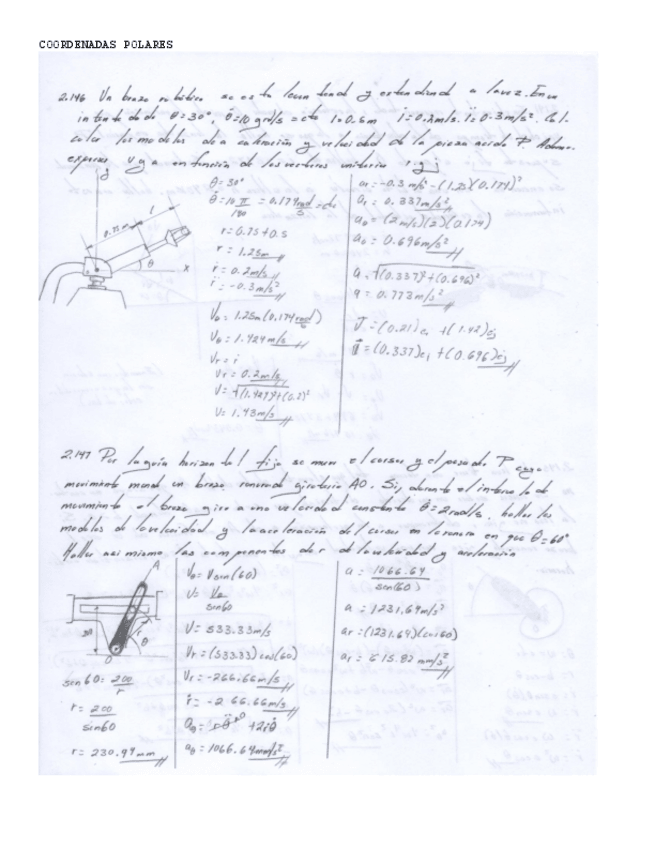 COORDENADAS POLARES
2.146 Un brazo robótico se está levantando y extendiendo a la vez. En un
instante dado θ=30°, θ̇=10 grd/s = cte l=0.5m l̇=0.2m/s. l̈=0.3m/s². Cal-
cular los modulos de a y velocidad de la pieza asida P. Adem-
expresar v y a en función de los vectores unitarios
j
0.75m
l
θ
x
θ=30°
θ̇=10 π/180 = 0.174 rad/s = cte
r=0.75+0.5
r=1.25m
ṙ=0.2m/s
r̈=-0.3m/s²
Vθ=1.25m(0.174 rad/s)
Vθ=1.424m/s
Vr=ṙ
Vr=0.2m/s
V=√(1.424)²+(0.2)²
V=1.43m/s
ar=-0.3m/s²-(1.25)(0.174)²
ar=0.337m/s²
aθ=(2m/s)(2)(0.174)
aθ=0.696m/s²
a=√(0.337)²+(0.696)²
a=0.773m/s²
V=(0.21)ei+(1.42)ej
=(0.337)ei+(0.696)ej
2.147 Por la guía horizontal fija se mueve el cursor y el pasador P cuyo
movimiento manda un brazo ranurado giratorio AO. Si, durante el intervalo de
movimiento el brazo gira a una velocidad constante θ̇=2rad/s, hallar los
modulos de la velocidad y la aceleración del cursor en la ranura en que θ=60°
Hallar asi mismo las componentes de r de la velocidad y aceleración
A
r
θ
O
sen60=200/r
r=200/sen60
r=230.94mm
Vθ=Vsen(60)
V=Vθ/sen60
V=533.33m/s
Vr=(533.33)cos(60)
Vr=-266.66m/s
ṙ=-266.66m/s
aθ=rθ̈ 0 +2ṙθ̇
aθ=1066.64mm/s²
a=1066.64/sen(60)
a=1231.64m/s²
ar=(1231.64)(cos60)
ar=615.82mm/s²